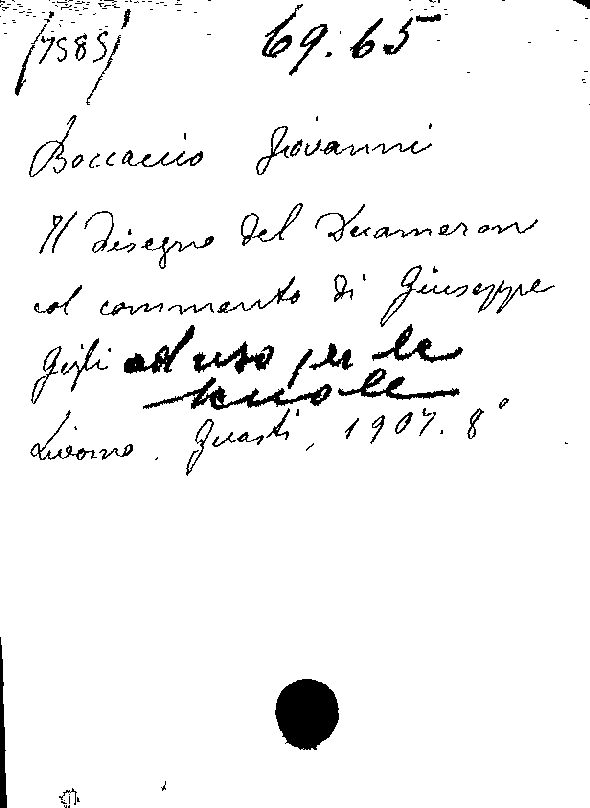 /7585/ 69.65
Boccaccio Giovanni
Il disegno del Decameron
col commento di Giuseppe
Gigli ad uso per le
scuole
Livorno. Giusti, 1907. 8°